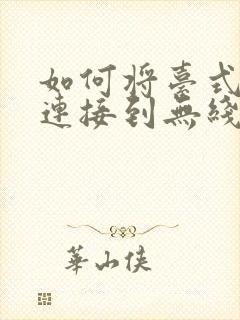 如何将臺式
連接到無綫
華山俠